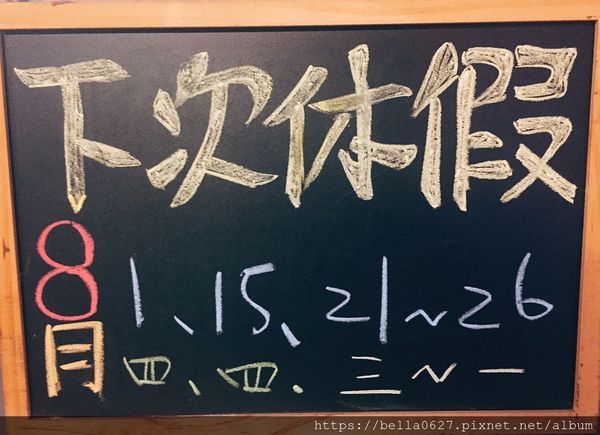 下次休假
8月 1、15、21~26
四、四、三~一
https://bella0627.pixnet.net/album